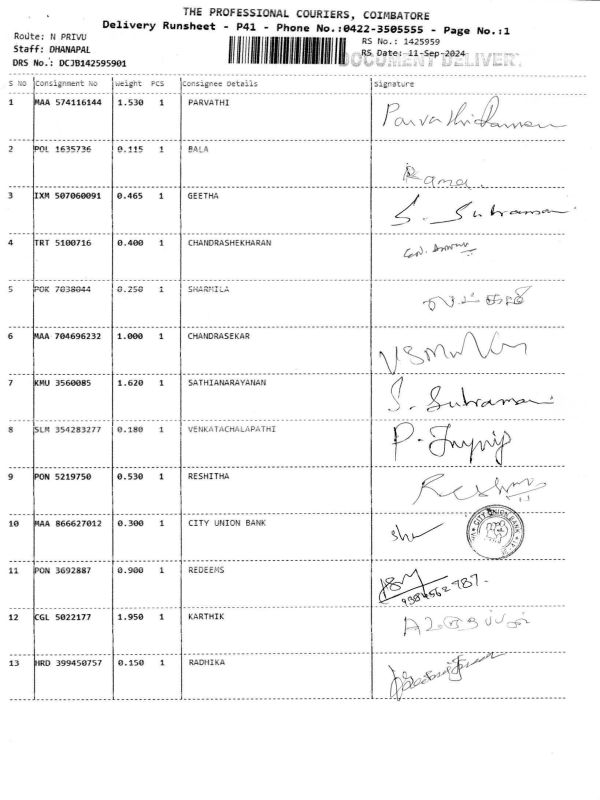 THE PROFESSIONAL COURIERS, COIMBATORE
Delivery Runsheet - P41 - Phone No.:0422-3505555 - Page No.:1
Route: N PRIVU
RS No.: 1425959
Staff: DHANAPAL
RS Date: 11-Sep-2024
DOCUMENT DELIVERY
DRS No.: DCJB142595901
S NO Consignment No Weight PCS Consignee Details Signature
1 MAA 574116144 1.530 1 PARVATHI
2 POL 1635736 0.115 1 BALA Rama.
3 IXM 507060091 0.465 1 GEETHA S. Subraman
4 TRT 5100716 0.400 1 CHANDRASHEKHARAN
5 POK 7038044 0.250 1 SHARMILA
6 MAA 704696232 1.000 1 CHANDRASEKAR
7 KMU 3560085 1.620 1 SATHIANARAYANAN S. Subraman
8 SLM 354283277 0.180 1 VENKATACHALAPATHI
9 PON 5219750 0.530 1 RESHITHA
10 MAA 866627012 0.300 1 CITY UNION BANK CITY UNION BANK
11 PON 3692887 0.900 1 REDEEMS
12 CGL 5022177 1.950 1 KARTHIK
13 HRD 399450757 0.150 1 RADHIKA